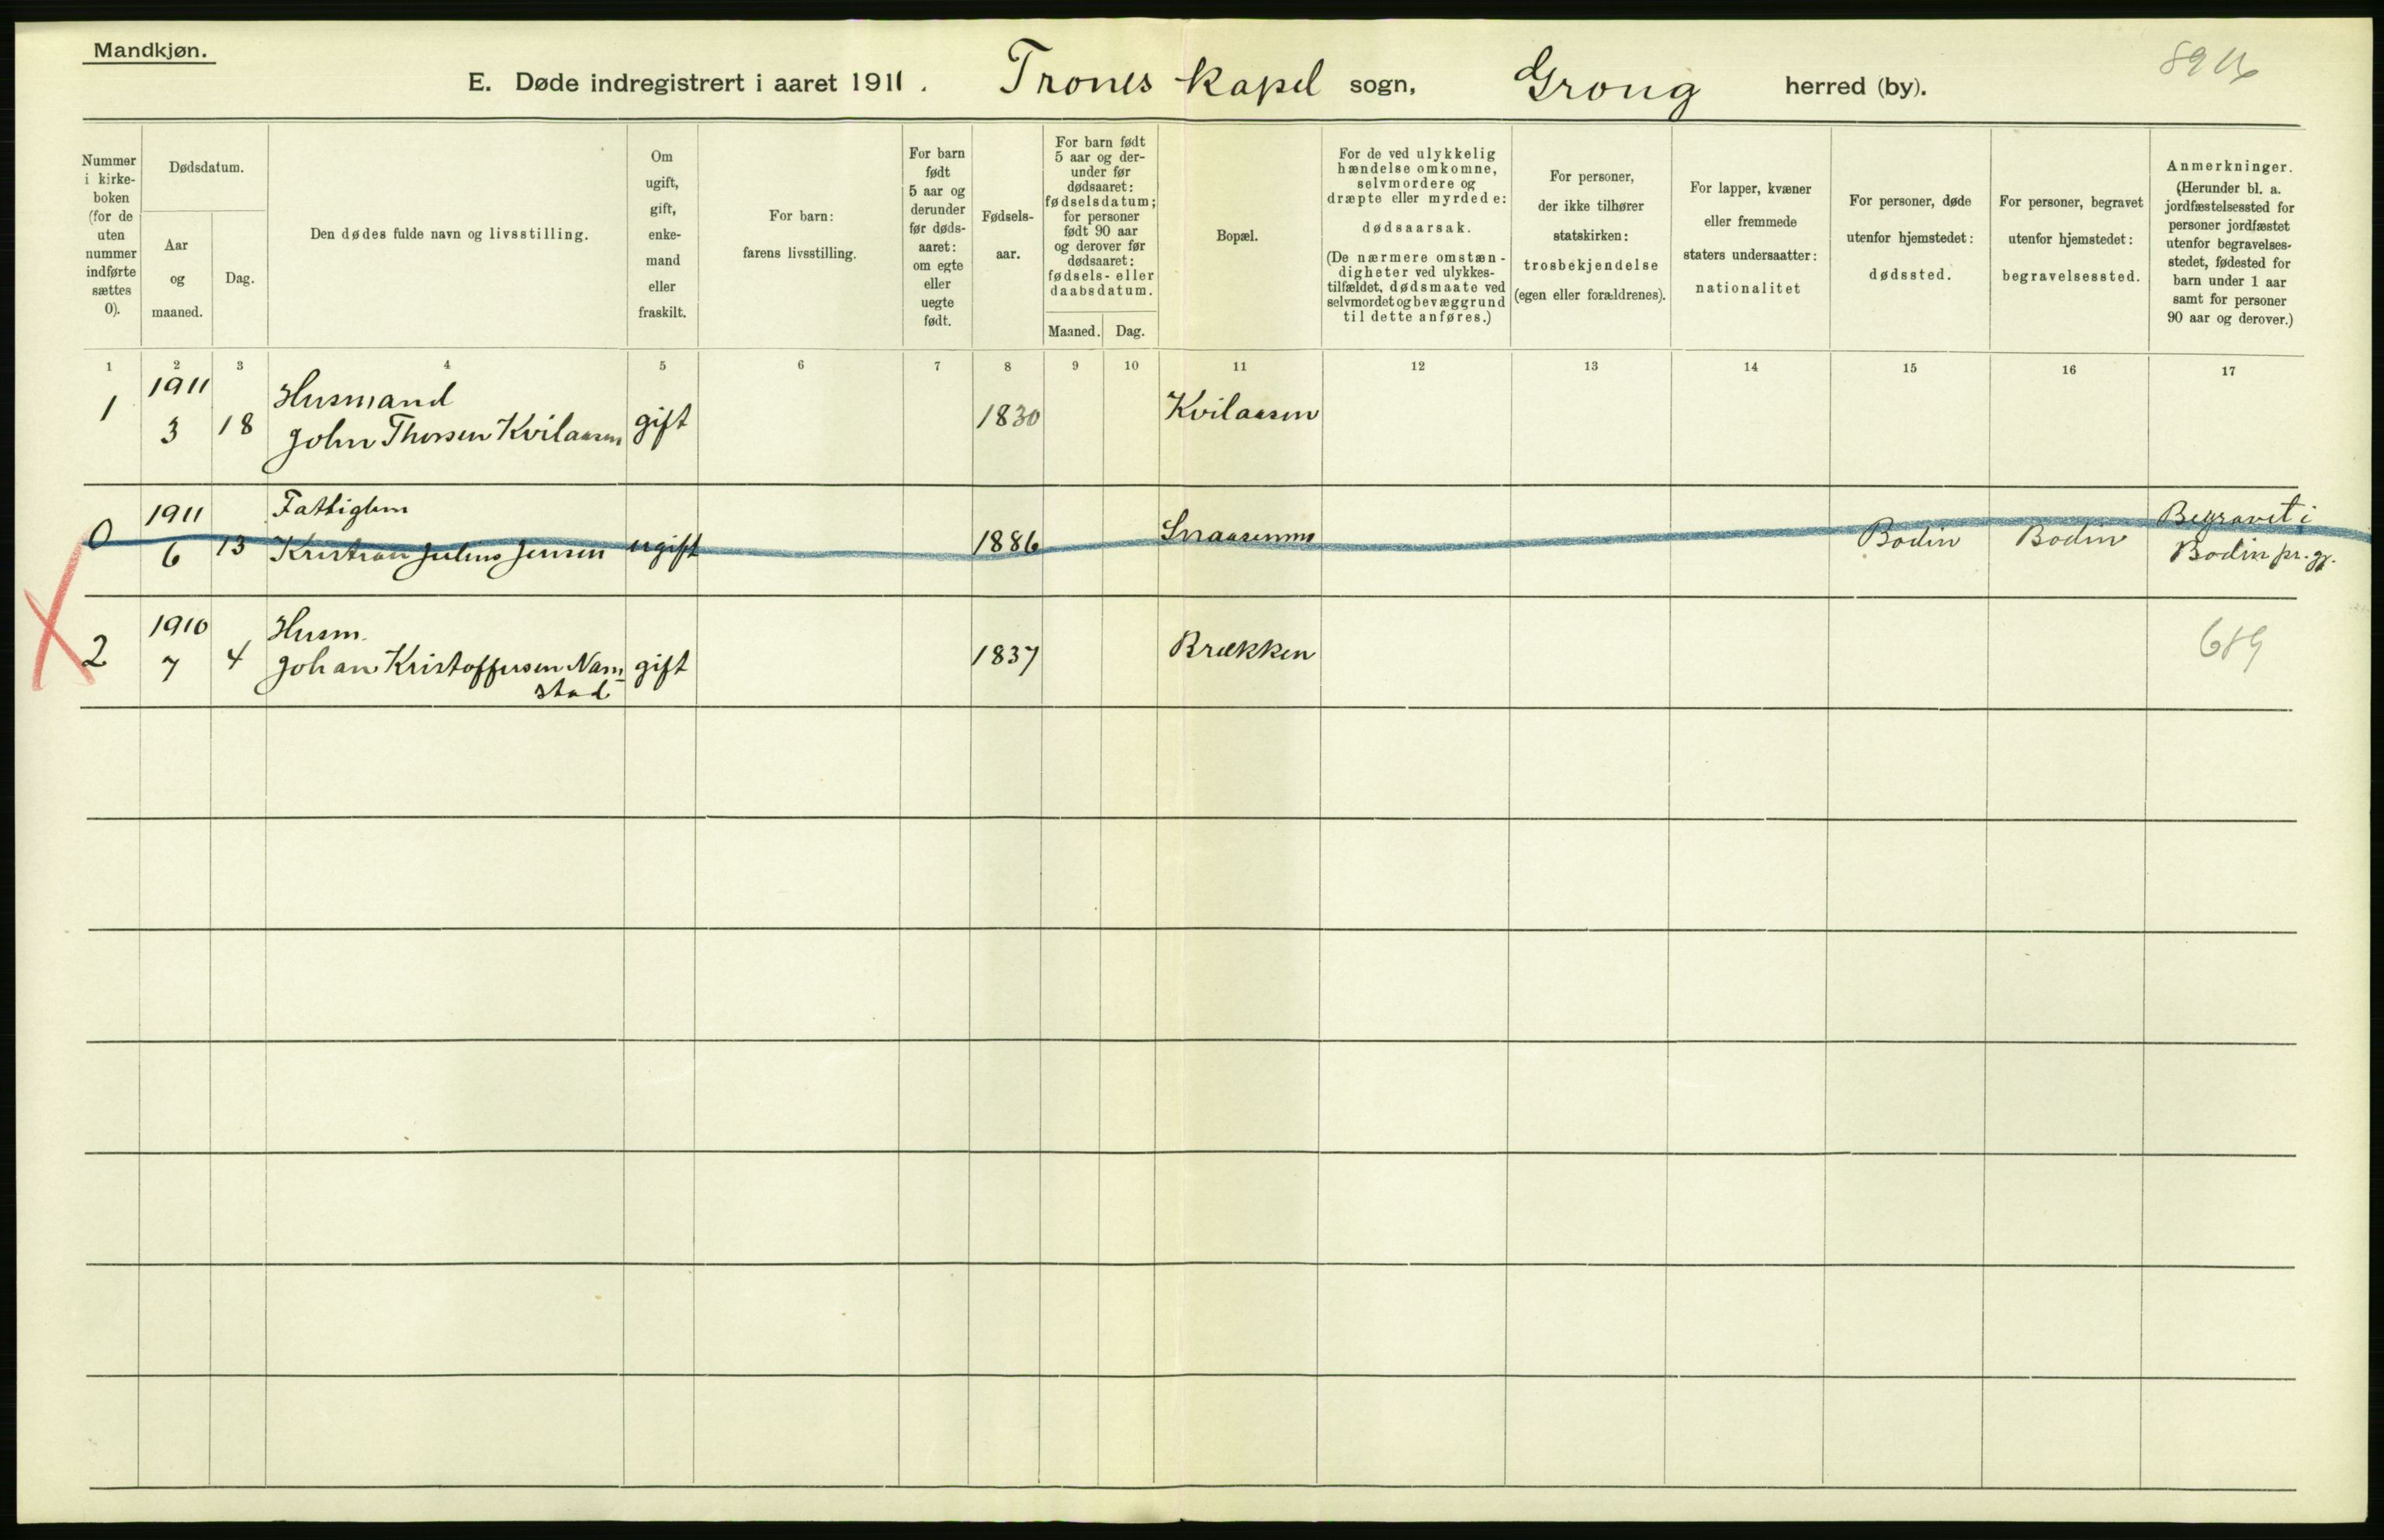 Mandkjøn.
E. Døde indregistrert i aaret 1911. Trones kapel sogn, Grong herred (by).
Nummer i kirkeboken (for de uten nummer indførte sættes 0).
Dødsdatum.
Aar og maaned.
Dag.
Den dødes fulde navn og livsstilling.
Om ugift, gift, enkemand eller fraskilt.
For barn: farens livsstilling.
For barn født 5 aar og derunder før dødsaaret: om egte eller uegte født.
Fødselsaar.
For barn født 5 aar og derunder før dødsaaret: fødselsdatum; for personer født 90 aar og derover før dødsaaret: fødsels- eller daabsdatum.
Maaned. Dag.
Bopæl.
For de ved ulykkelig hændelse omkomne, selvmordere og dræpte eller myrdede: dødsaarsak. (De nærmere omstændigheter ved ulykkestilfældet, dødsmaate ved selvmordet og bevæggrund til dette anføres.)
For personer, der ikke tilhører statskirken: trosbekjendelse (egen eller forældrenes).
For lapper, kvæner eller fremmede staters undersaatter: nationalitet
For personer, døde utenfor hjemstedet: dødssted.
For personer, begravet utenfor hjemstedet: begravelsessted.
Anmerkninger. (Herunder bl. a. jordfæstelsessted for personer jordfæstet utenfor begravelsesstedet, fødested for barn under 1 aar samt for personer 90 aar og derover.)
1 2 3 4 5 6 7 8 9 10 11 12 13 14 15 16 17
1911 Husmand
1 3 18 John Thorsen Kvilaasen gift 1830 Kvilaasen
1911 Fattiglem Begravet i
0 6 13 Kristian Julius Jensen ugift 1886 Bodin Bodin Bodin pr.gj.
1910 Husm.
2 7 4 Johan Kristoffersen Nam- gift 1837 Brækken 689
stad